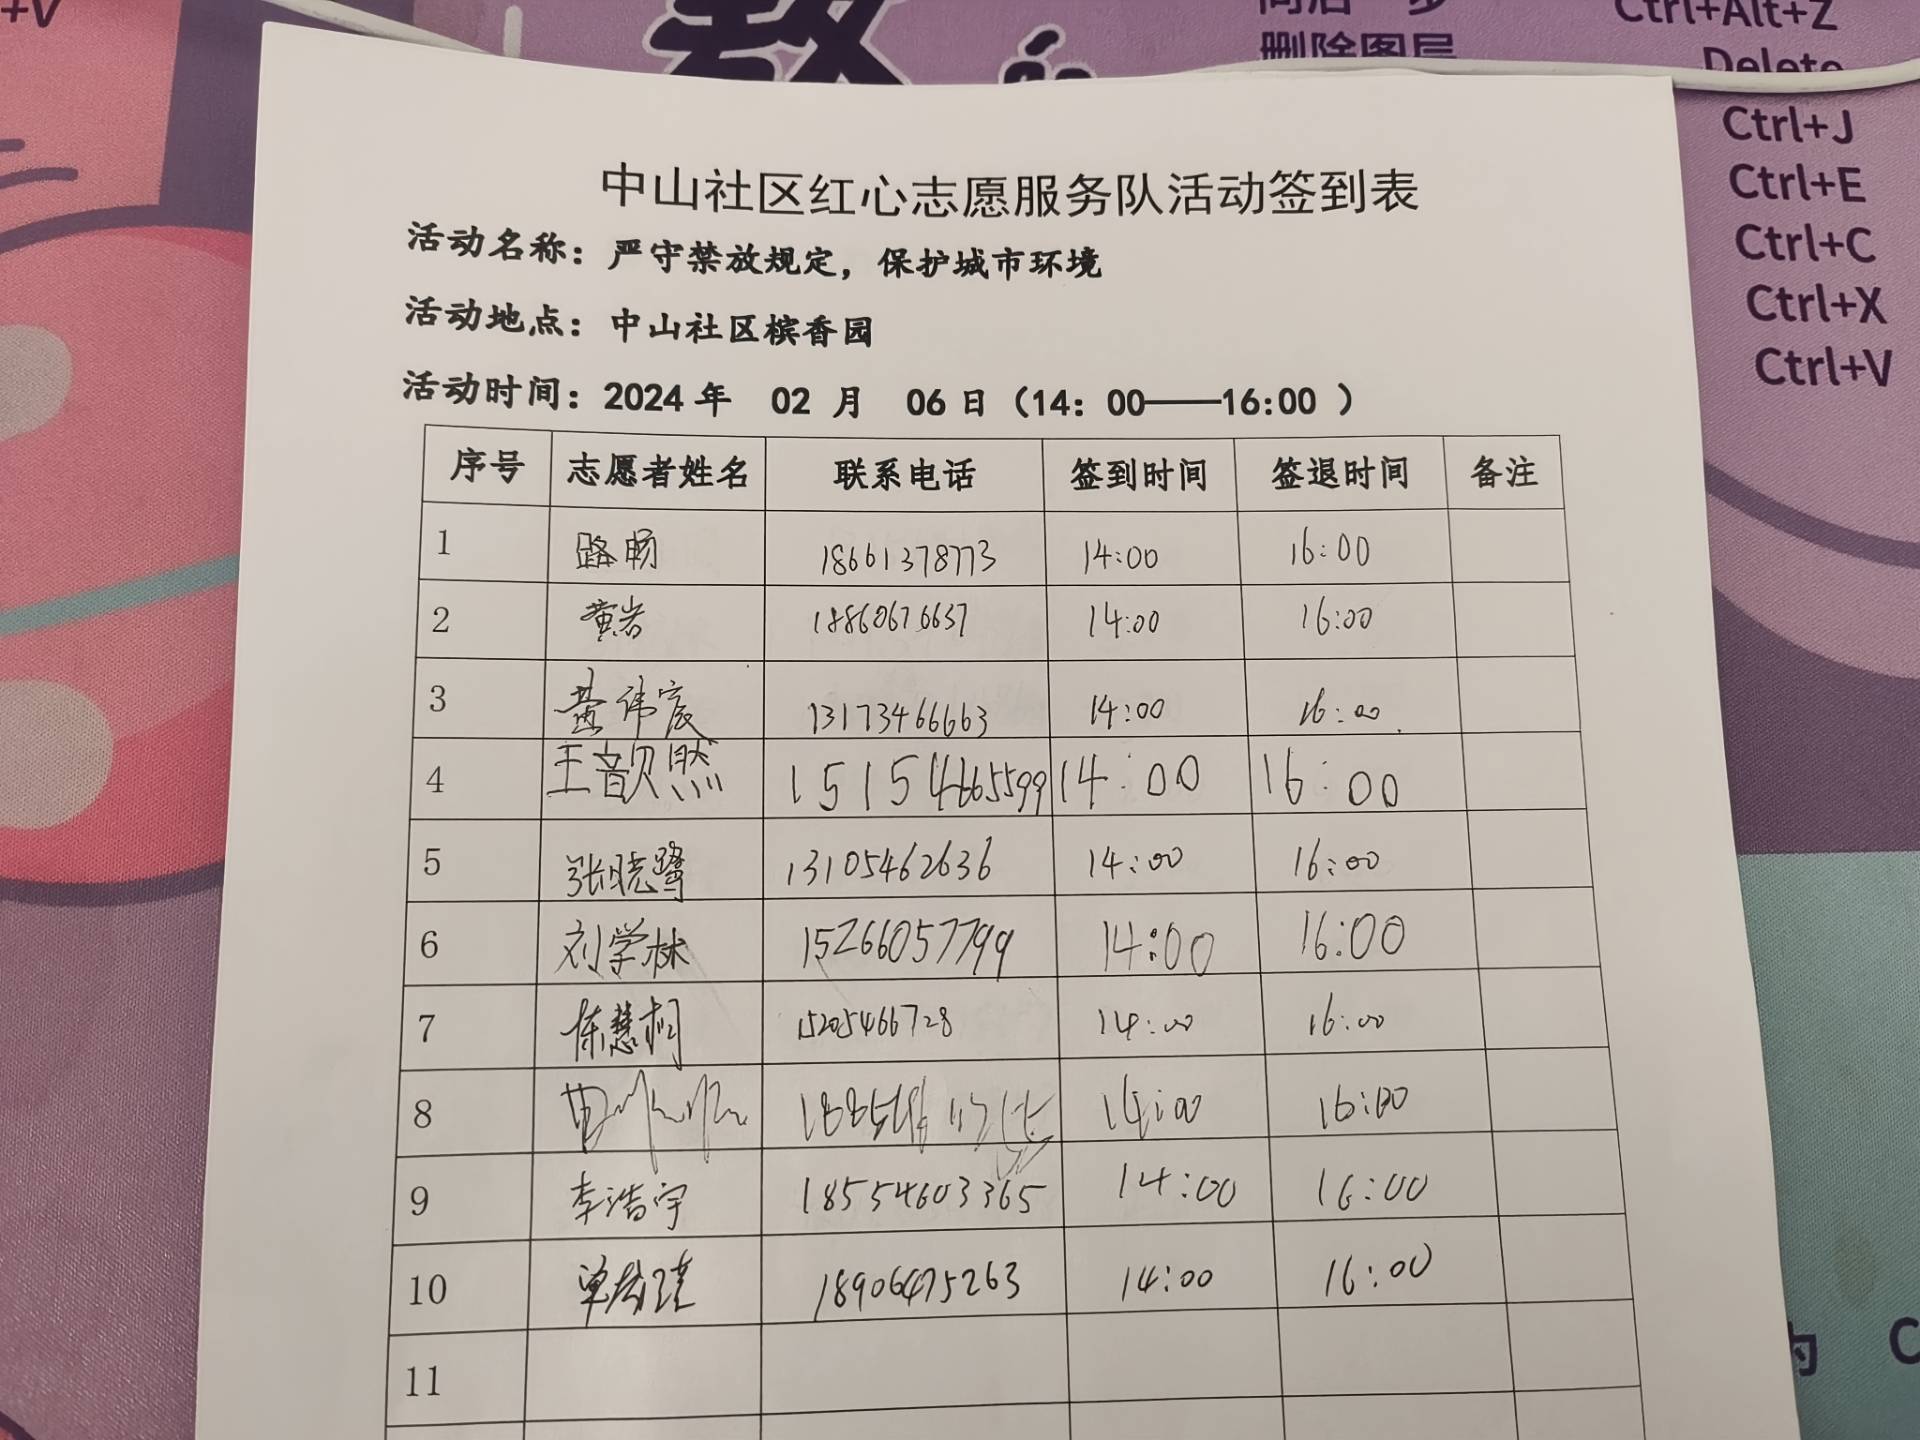 +V
教
向后一步
删除图层
Ctrl+Alt+Z
Delete
Ctrl+J
Ctrl+E
Ctrl+C
Ctrl+X
Ctrl+V
中山社区红心志愿服务队活动签到表
活动名称：严守禁放规定，保护城市环境
活动地点：中山社区槟香园
活动时间：2024年 02 月 06日（14：00——16:00 ）
序号 志愿者姓名 联系电话 签到时间 签退时间 备注
1 路畅 18661378773 14:00 16:00
2 黄岩 18860676637 14:00 16:00
3 13173466663 14:00 16:00
4 王韵然 15154665599 14:00 16:00
5 张晓鹭 13105462636 14:00 16:00
6 刘学林 15266057799 14:00 16:00
7 陈慧桐 15205466728 14:00 16:00
8 14:00 16:00
9 李浩宇 18554603365 14:00 16:00
10 18906475263 14:00 16:00
11